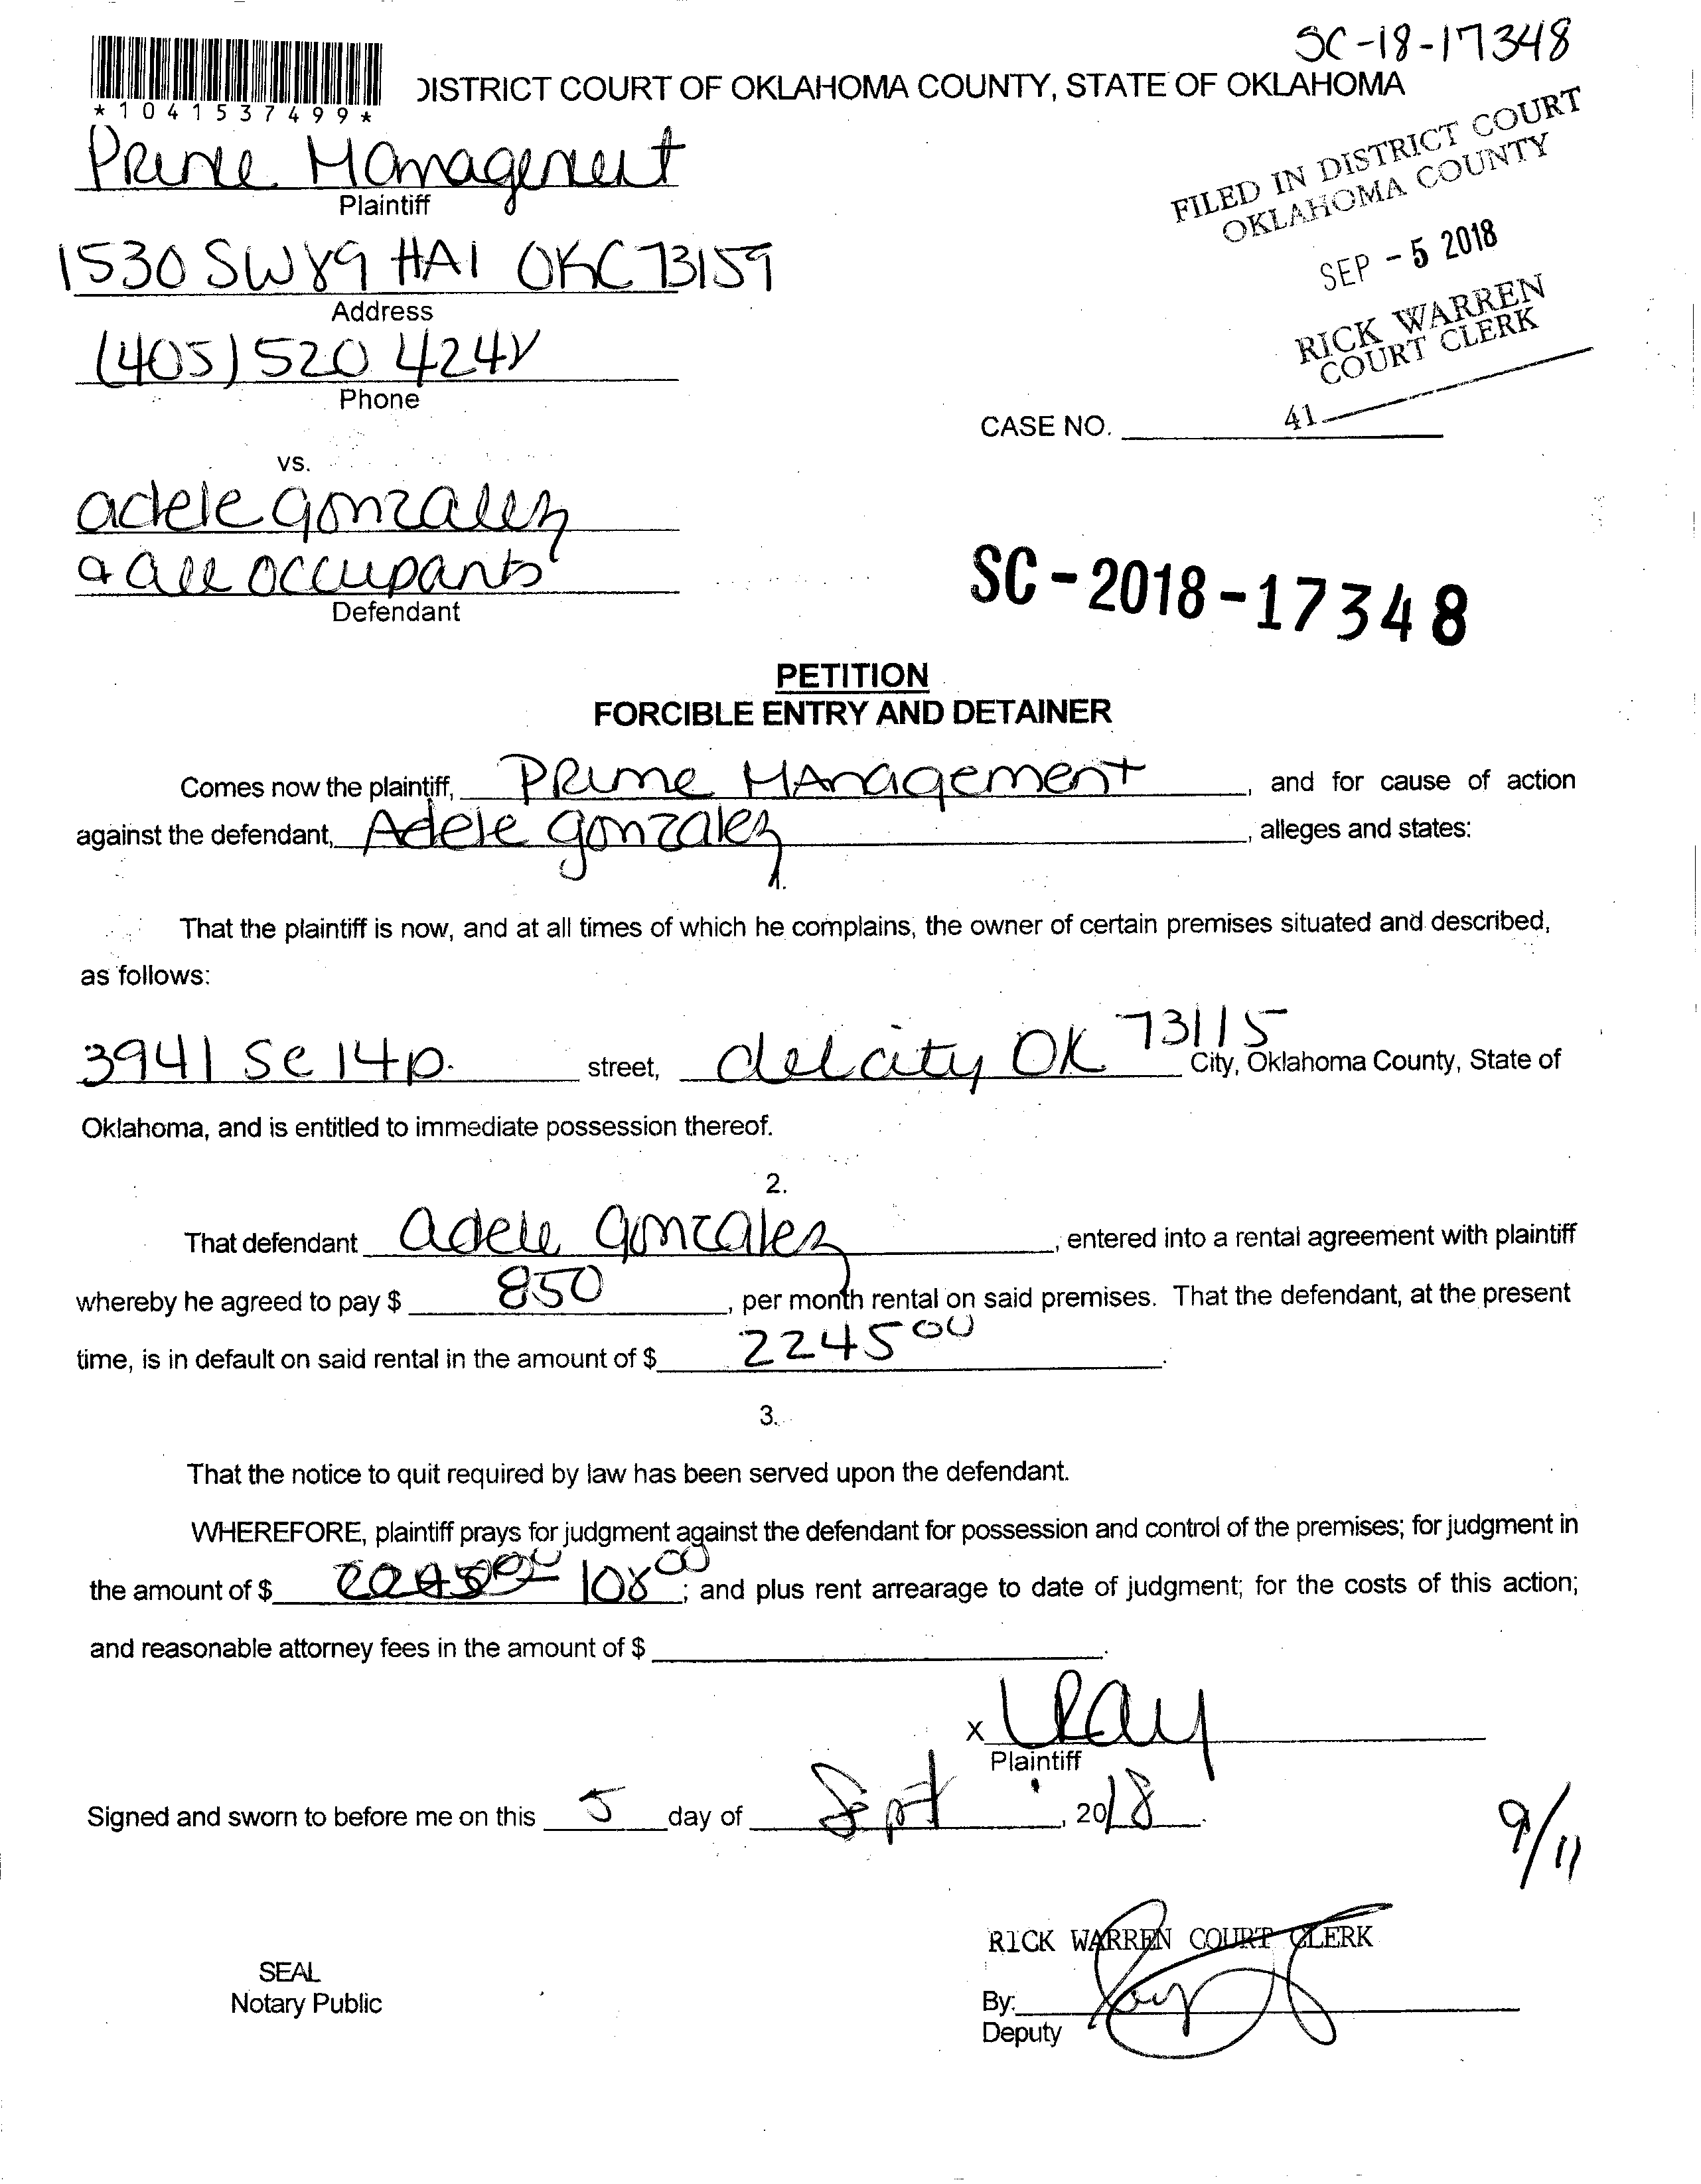 SC-18-17348
DISTRICT COURT OF OKLAHOMA COUNTY, STATE OF OKLAHOMA
*1041537499*
FILED IN DISTRICT COURT
OKLAHOMA COUNTY
SEP - 5 2018
RICK WARREN
COURT CLERK
41
Prime Management
Plaintiff
1530 SW 89 #A1 OKC 73159
Address
(405) 520 424
Phone
CASE NO.
vs.
adele gonzalez
& all occupants
Defendant
SC-2018-17348
PETITION
FORCIBLE ENTRY AND DETAINER
Comes now the plaintiff, Prime Management, and for cause of action
against the defendant, Adele gonzalez, alleges and states:
1.
That the plaintiff is now, and at all times of which he complains, the owner of certain premises situated and described,
as follows:
3941 Se 14 p. street, del city OK 73115 City, Oklahoma County, State of
Oklahoma, and is entitled to immediate possession thereof.
2.
That defendant adele gonzalez, entered into a rental agreement with plaintiff
whereby he agreed to pay $ 850, per month rental on said premises. That the defendant, at the present
time, is in default on said rental in the amount of $ 2245 00.
3.
That the notice to quit required by law has been served upon the defendant.
WHEREFORE, plaintiff prays for judgment against the defendant for possession and control of the premises; for judgment in
the amount of $ 108 00; and plus rent arrearage to date of judgment; for the costs of this action;
and reasonable attorney fees in the amount of $
x LRay
Plaintiff
Signed and sworn to before me on this 5 day of Sept, 2018.
9/11
RICK WARREN COURT CLERK
SEAL
Notary Public
By:
Deputy